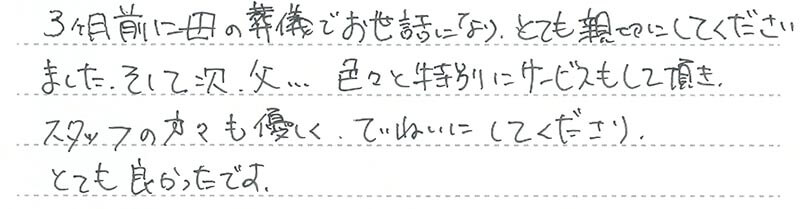 3ヶ月前に母の葬儀でお世話になり、とても親切にしてください
ました。そして次、父… 色々と特別にサービスもして頂き、
スタッフの方々も優しく、ていねいにしてくださり、
とても良かったです。